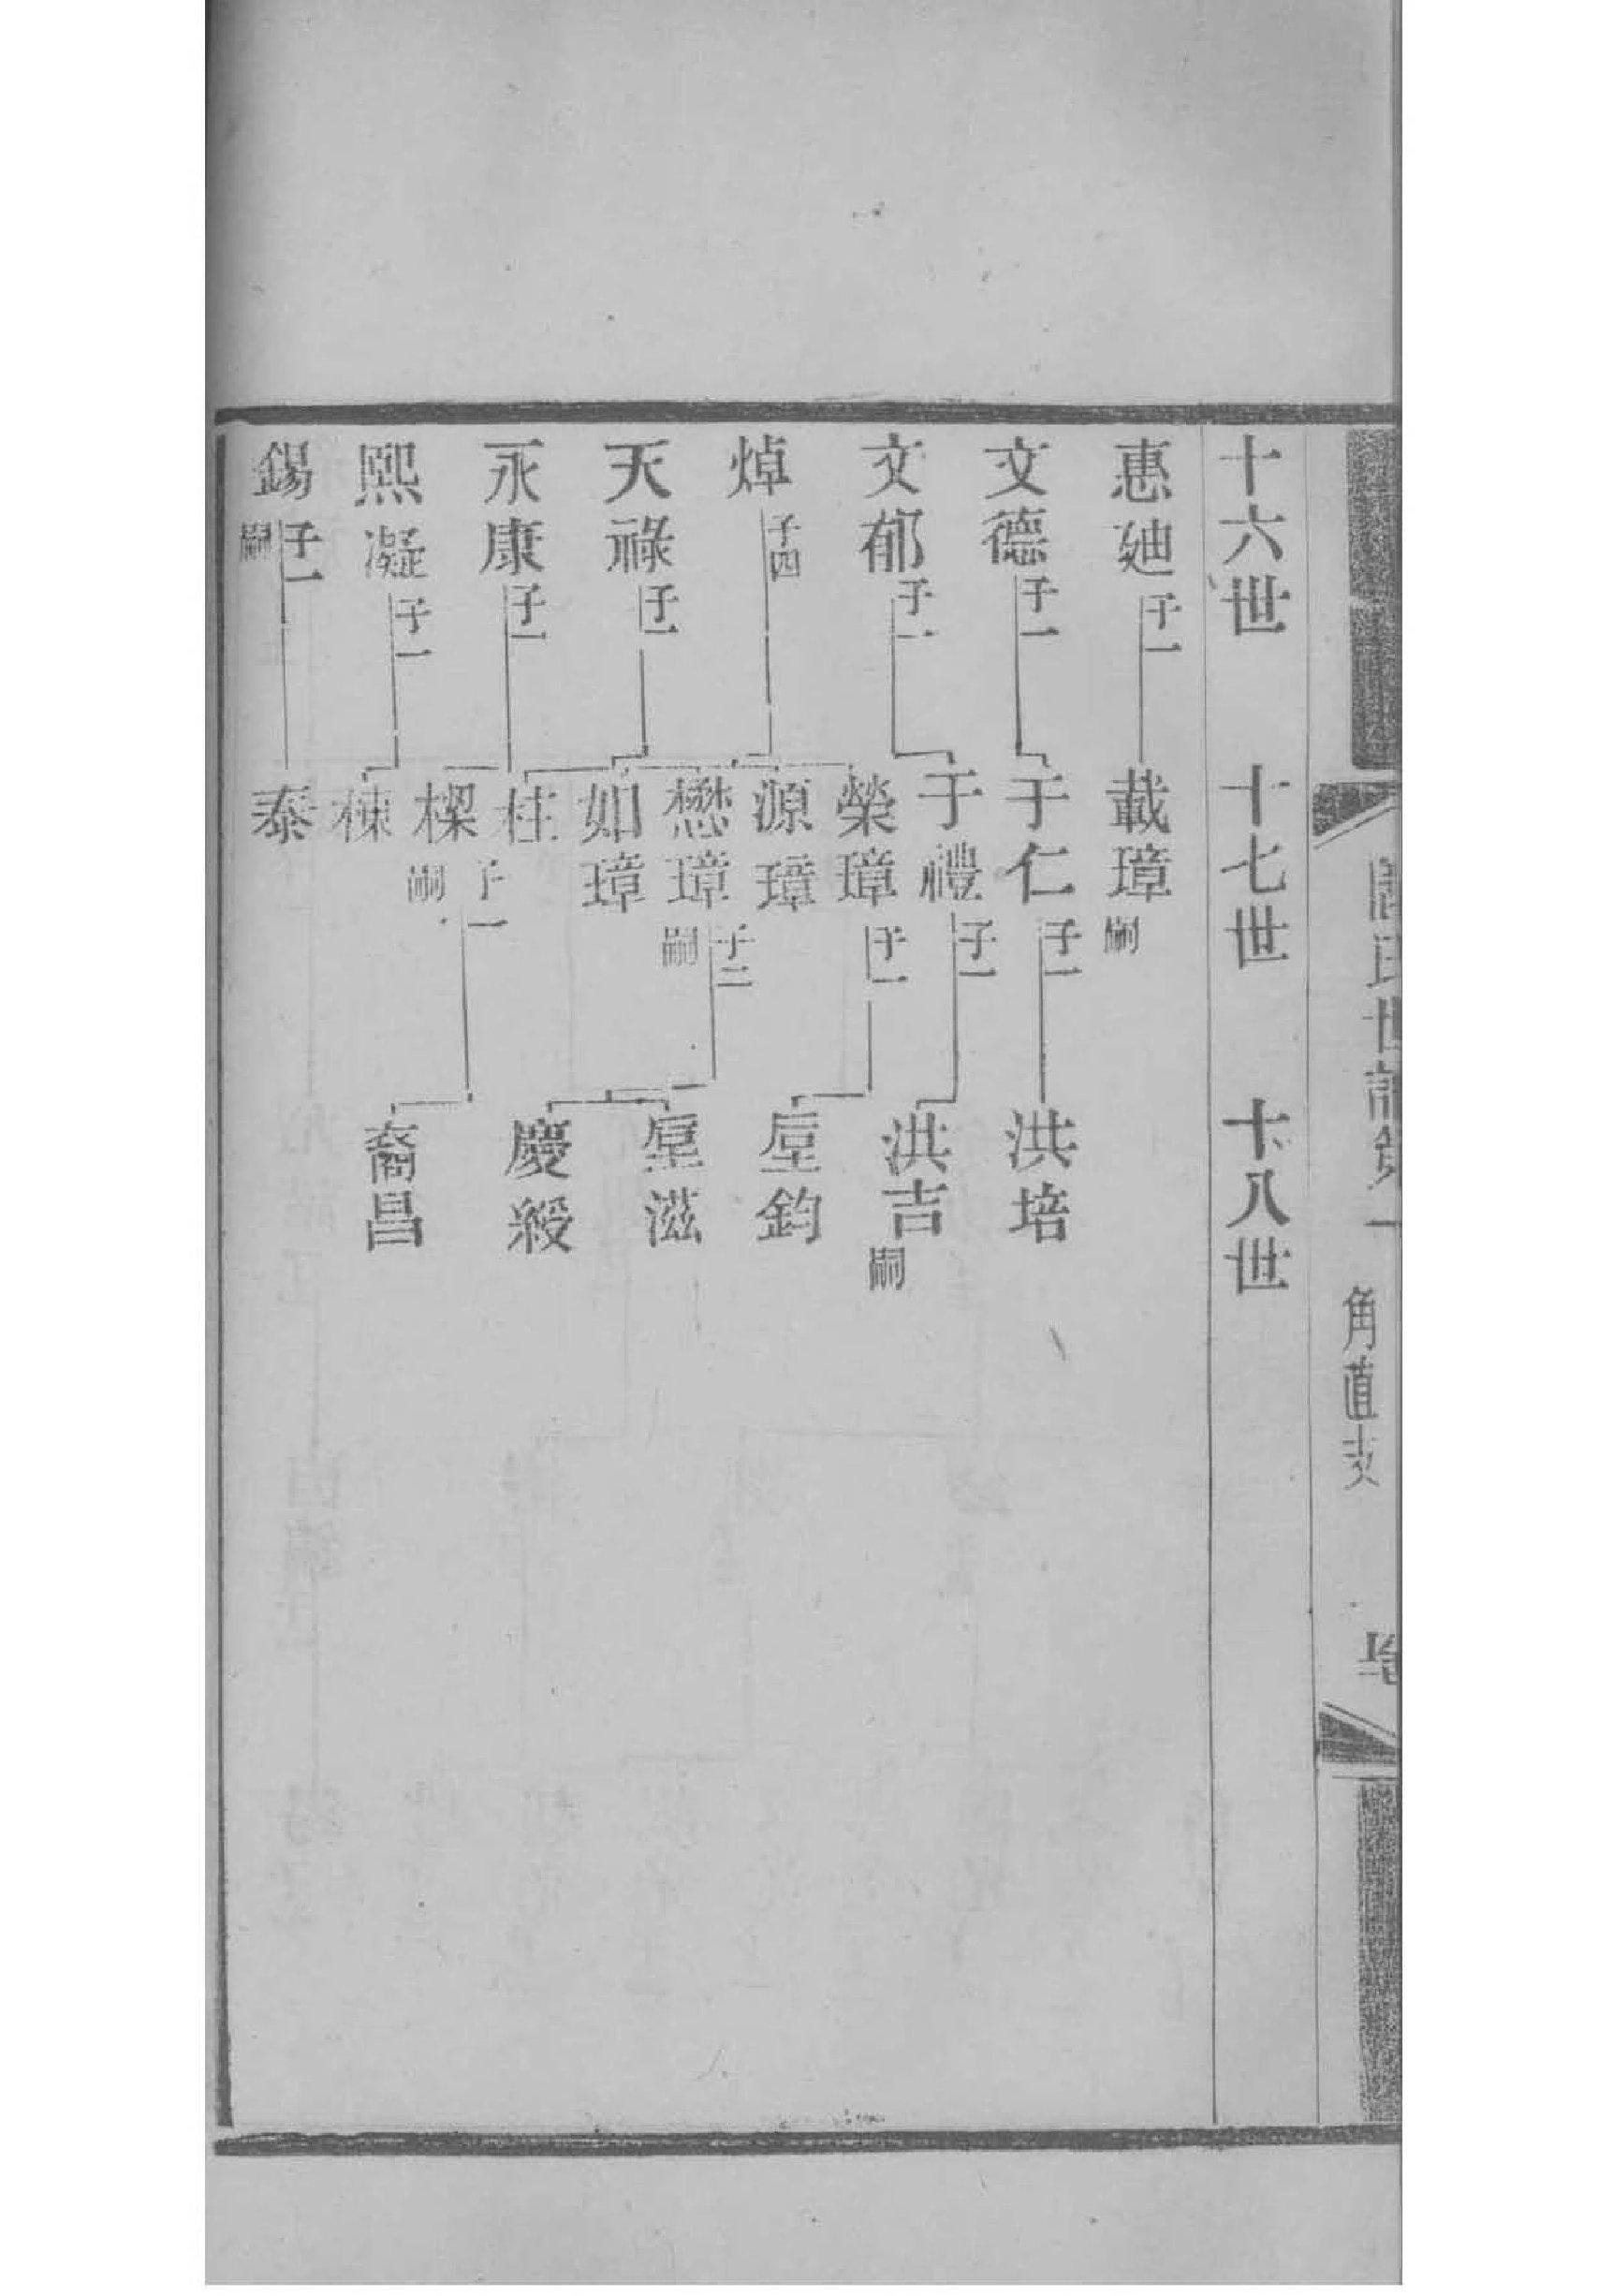 十六世 十七世 十八世
惠廸 子一
文德 子一
文郁 子一
焯 子四
天祿 子一
永康 子一
熙凝 子一
錫 子一 嗣
載璋 嗣
于仁 子一
于禮 子一
榮璋 子一
源璋
懋璋 子二 嗣
如璋
桂
樑 子一 嗣
棟
泰
洪培
洪吉 嗣
垕鈞
垕滋
慶綬
裔昌
氏世譜 一
角直支